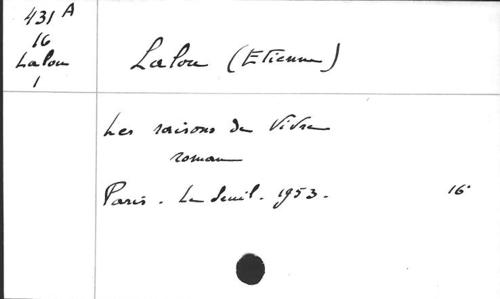 431 A
16
Lalou
1
Lalou (Etienne)
Les raisons de Vivre
roman
Paris. Le Seuil. 1953. 16°